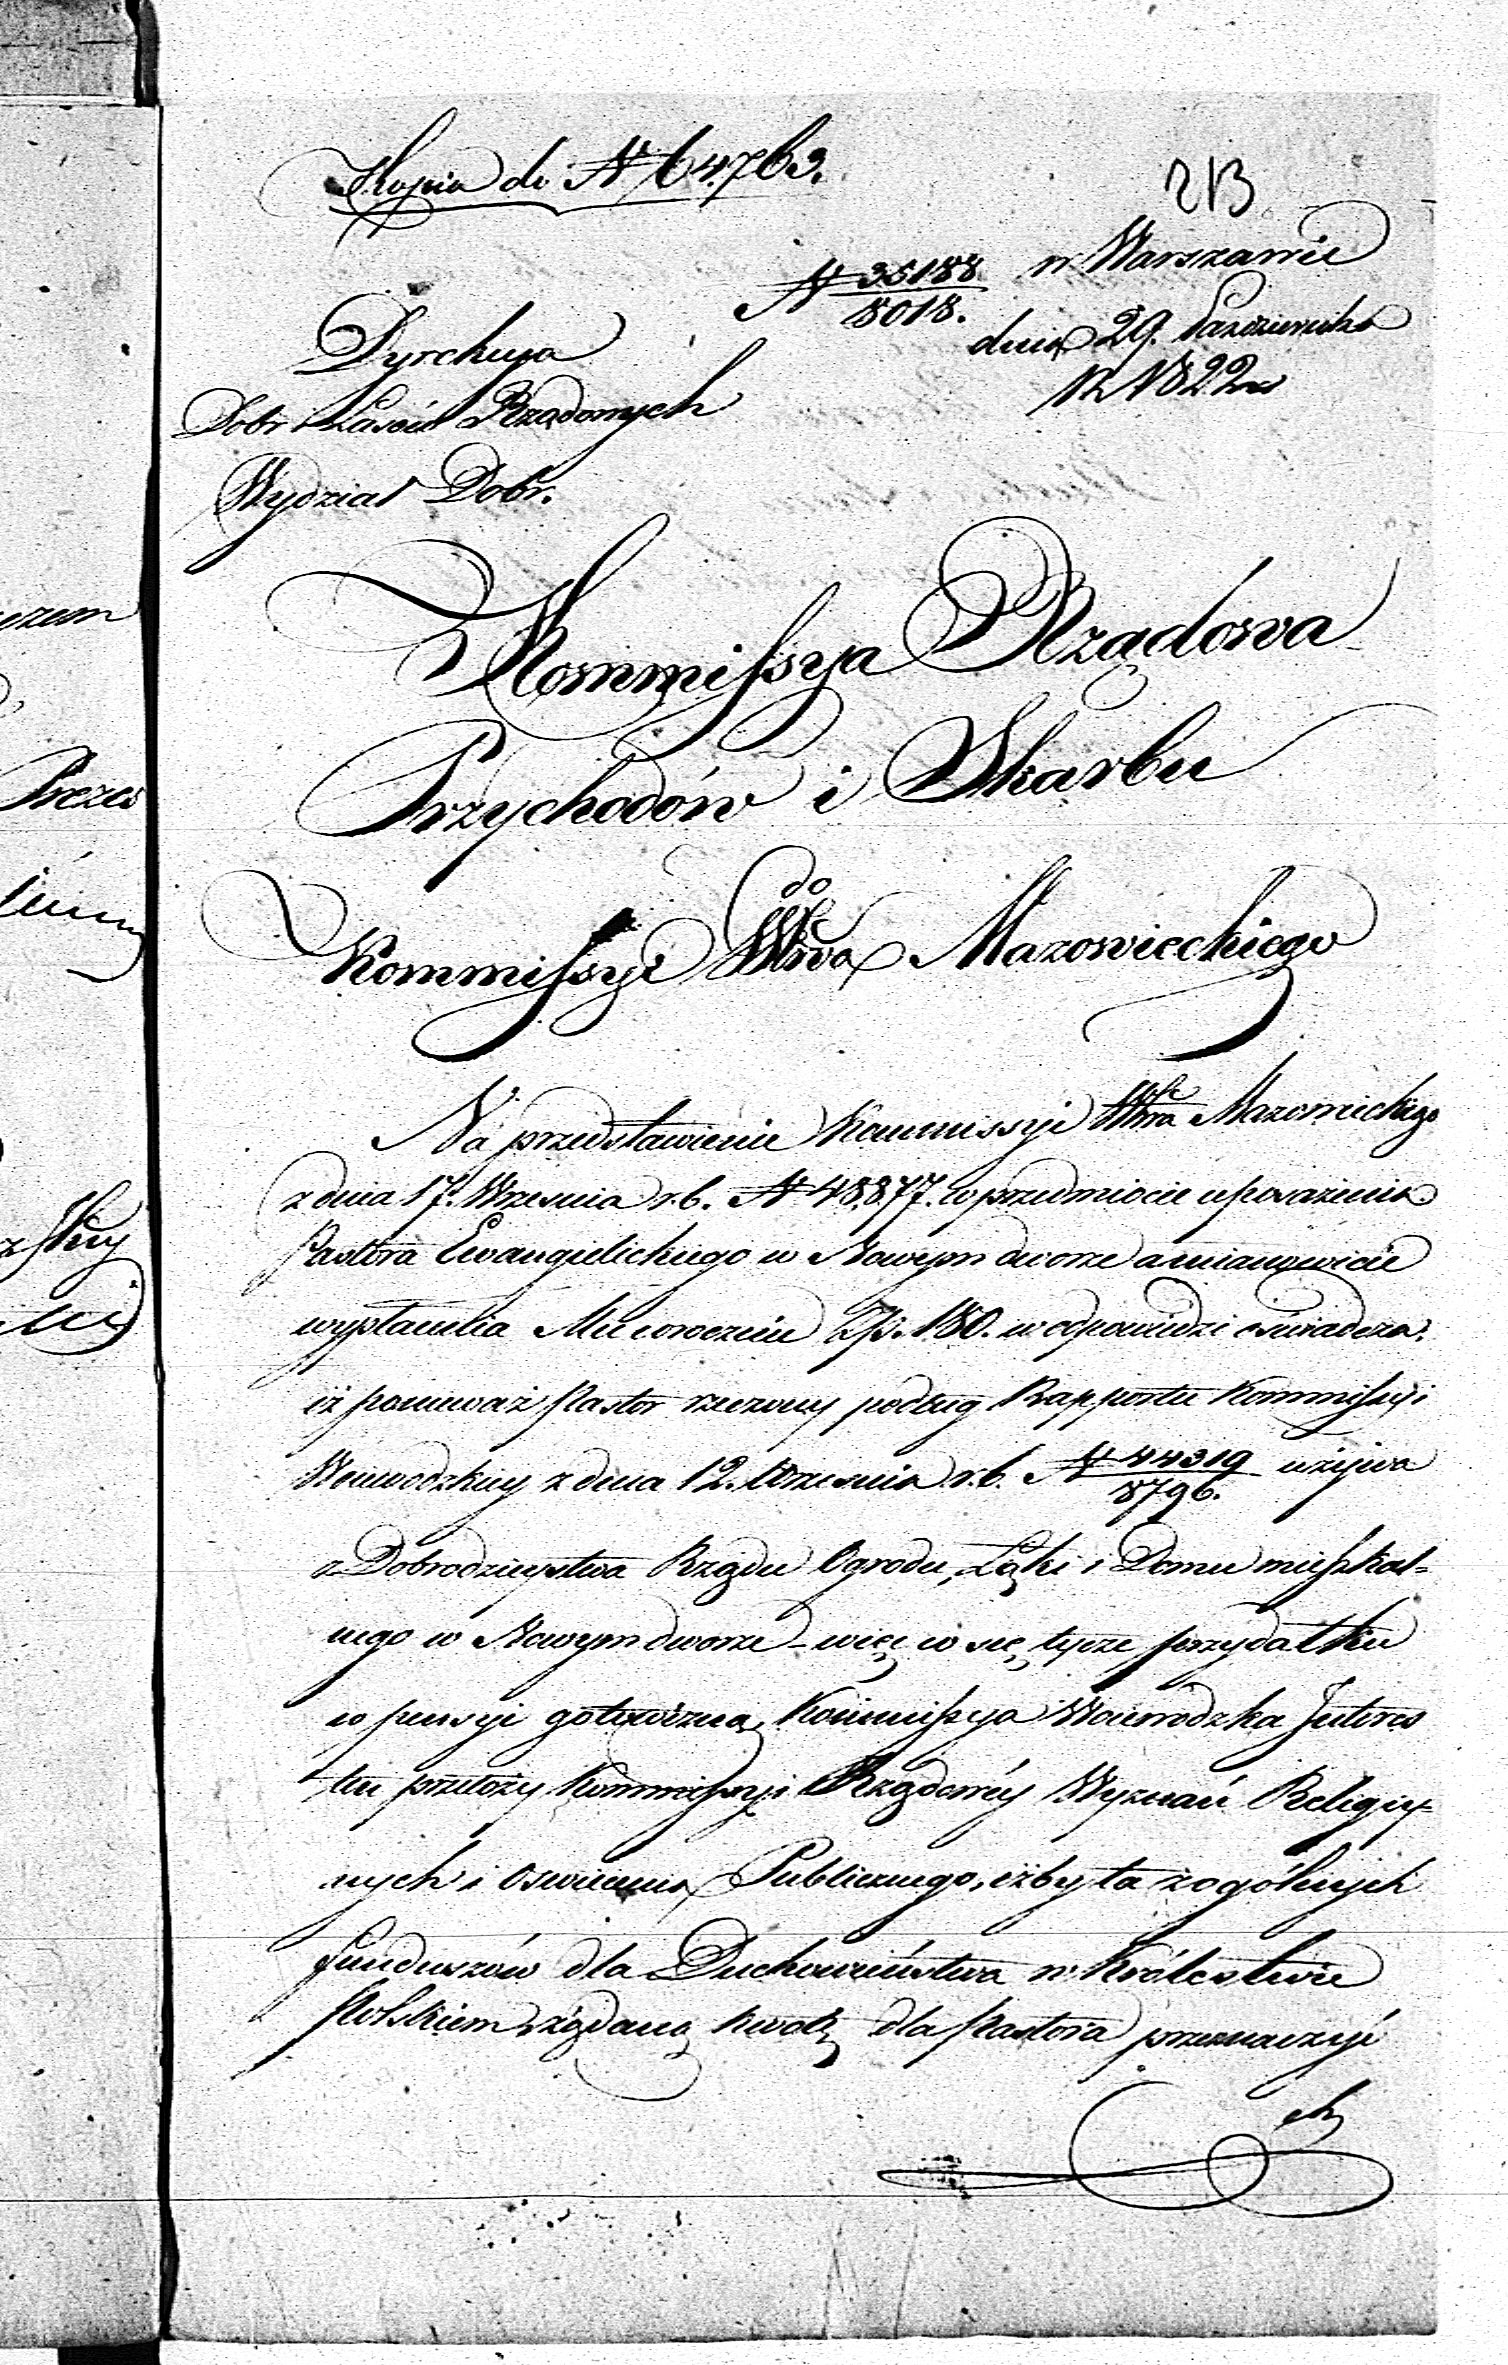 Kopia do N 64763.
213
N 35188/8018. w Warszawie
dnia 29. Pazdziernika
R 1822
Dyrekcya
Dobr i Lasów Rządowych
Wydział Dobr.
Kommissya Rządowa
Przychodów i Skarbu
do
Kommissyi Wwa Mazowieckiego
Na przedstawienie Kommissyi Wwa Mazowieckiego
z dnia 17. Wrzesnia r. b. N 48,877. w przedmiocie uposażenia
Pastora Ewangielickiego w Nowym dworze a mianowicie
wypłacenia Mu corocznie Zp. 180. w odpowiedzi oświadcza,
iż ponieważ Pastor rzeczony podług Rapportu Kommissyi
Woiewodzkiey z dnia 12. Wrzesnia r. b. N 44319/8796. używa
z Dobrodzieystwa Rządu Ogrodu, Łąki i Domu mieszkal=
nego w Nowym dworze – więc co się tycze przydatku
co pensyi gotowizną, Kommissya Woiewodzka Interes
ten przełoży Kommissyi Rządowéy Wyznań Religiy=
nych i Oswiecenia Publicznego, iżby ta z ogólnych
funduszów dla Duchowieństwa w Królestwie
Polskiem żądaną kwotę dla Pastora przeznaczyć